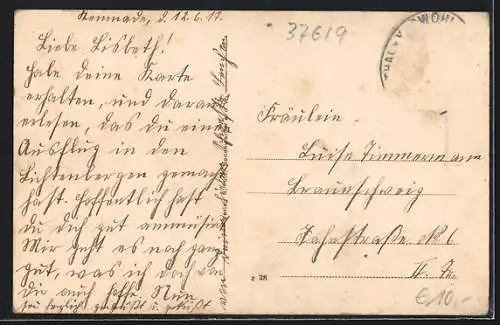 Kemnade, d. 12.6.17.
Liebe Lisbeth!
Habe deine Karte
erhalten, und daraus
erlesen, das du einen
Ausflug in den
Lichtenbergen gemacht
hast. Hoffentlich hast
du dich gut ammüsiert
Mir geht es noch ganz
gut, was ich doch von
dir auch hoffe. Nun
sei herzlich gegrüßt u. geküßt
von
37619
WOHL
Fräulein
Luise Timmermann
Braunschweig
Jahnstraße No 6
II. Et.
z 28
€10,-